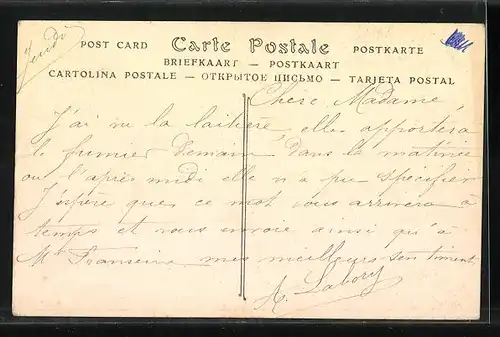 Jeudi
POST CARD Carte Postale POSTKARTE
BRIEFKAART — POSTKAART
CARTOLINA POSTALE — ОТКРЫТОЕ ПИСЬМО — TARJETA POSTAL
Chère Madame,
J'ai vu la laitière, elle apportera
le fumier demain dans la matinée
ou l'après midi elle n'a pu spécifier
J'espère que ce mot vous arrivera à
temps et vous envoie ainsi qu'à
mes meilleurs sentiments
A. Labory